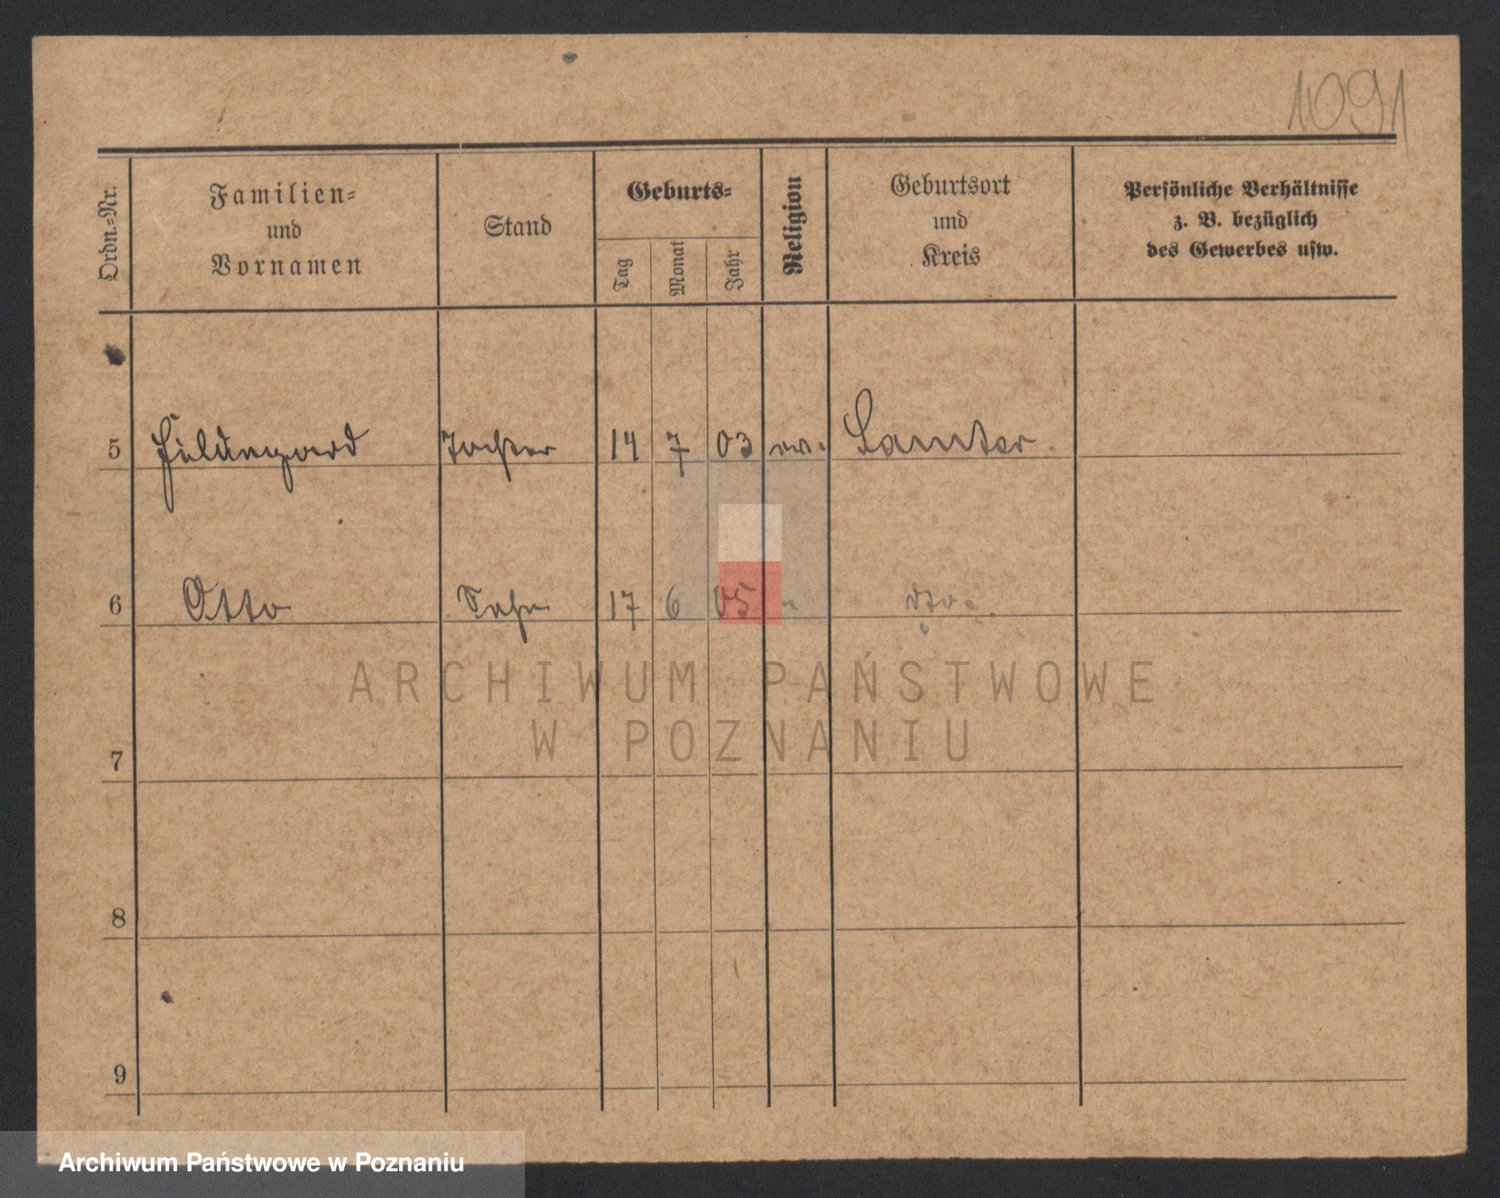 1091
Ordn.-Nr.
Familien-
und
Vornamen
Stand
Geburts-
Tag
Monat
Jahr
Religion
Geburtsort
und
Kreis
Persönliche Verhältnisse
z. B. bezüglich
des Gewerbes usw.
5 Tochter 14 7 03 ev. Samter
6 Otto Sohn 17 6 05 " dto.
ARCHIWUM PAŃSTWOWE
W POZNANIU
7
8
9
Archiwum Państwowe w Poznaniu